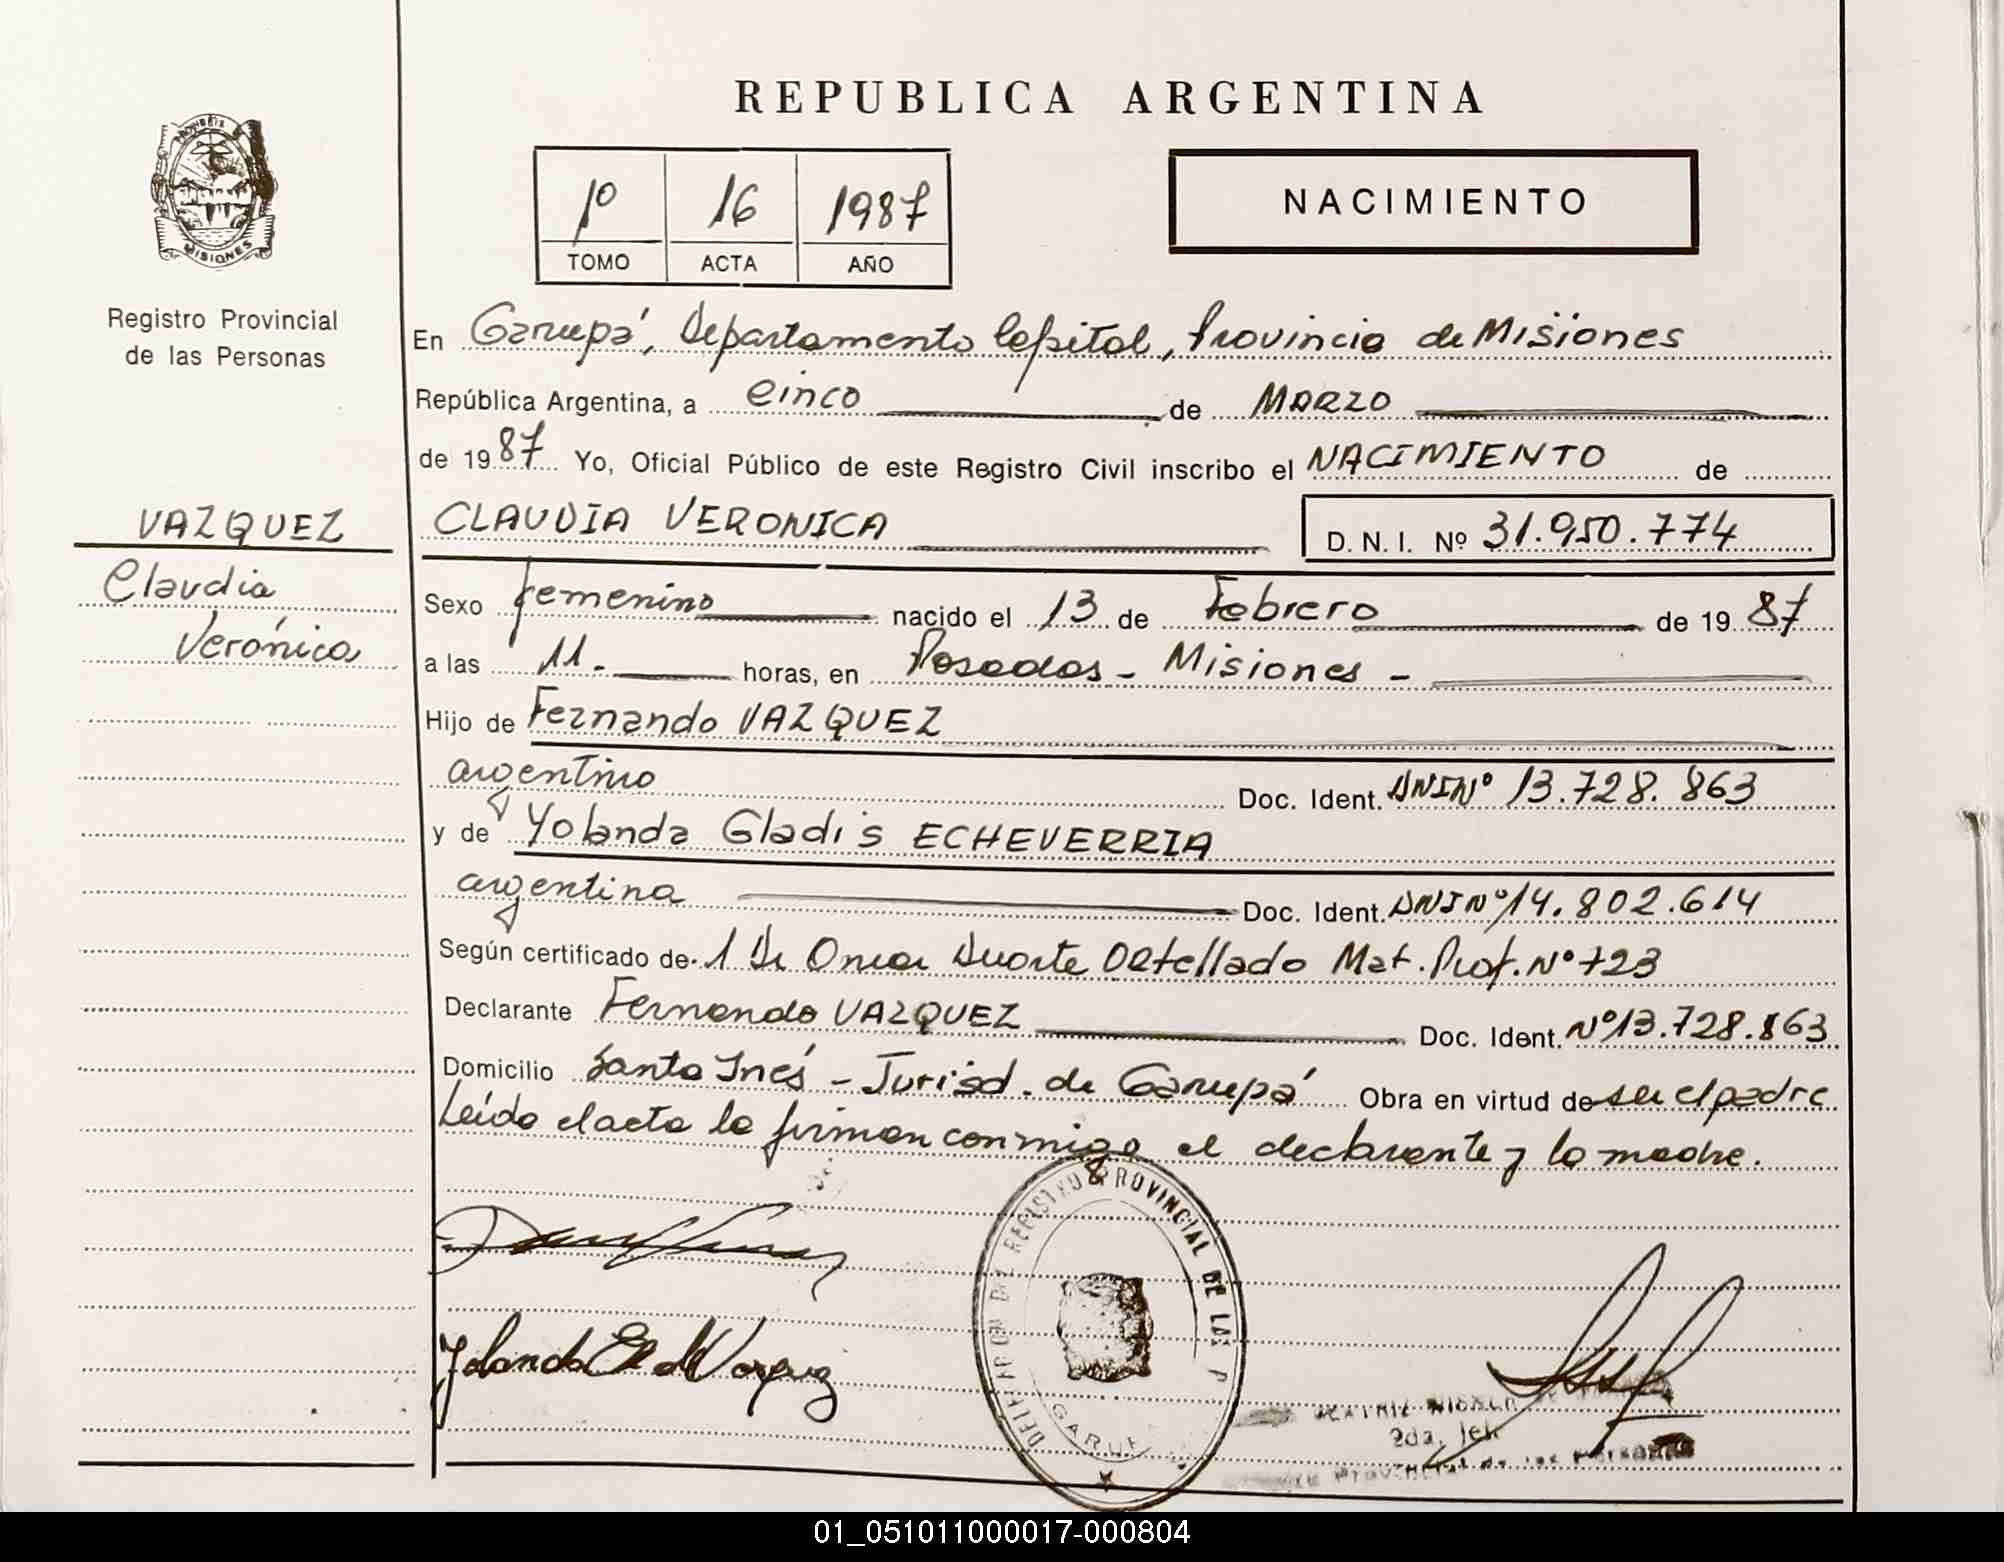 REPUBLICA ARGENTINA
1º 16 1987
TOMO ACTA AÑO
NACIMIENTO
MISIONES
Registro Provincial
de las Personas
VAZQUEZ
Claudia
Verónica
En Garupá, Departamento Capital, Provincia de Misiones
República Argentina, a cinco de MARZO
de 1987 Yo, Oficial Público de este Registro Civil inscribo el NACIMIENTO de
CLAUDIA VERONICA D. N. I. Nº 31.950.774
Sexo femenino nacido el 13 de Febrero de 1987
a las 11.- horas, en Posadas - Misiones -
Hijo de Fernando VAZQUEZ
argentino Doc. Ident. DNI Nº 13.728.863
y de Yolanda Gladis ECHEVERRIA
argentina Doc. Ident. DNI Nº 14.802.614
Según certificado de 1 Dr Omar Duarte Ortellado Mat. Prof. Nº 723
Declarante Fernando VAZQUEZ Doc. Ident. Nº 13.728.863
Domicilio Santa Inés - Jurisd. de Garupá Obra en virtud de ser el padre
Leída el acta la firman conmigo el declarante y la madre.
REGISTRO PROVINCIAL DE LAS P
GARUP
Yolanda E. de Vazquez
2da. Jef
01_051011000017-000804